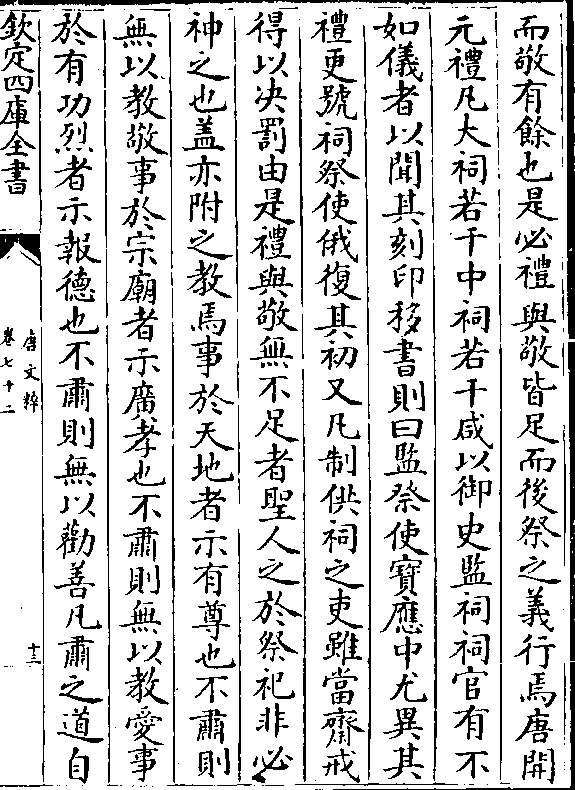 而敬有餘也是必禮與敬皆足而後祭之義行焉唐開
元禮凡大祠若干中祠若干咸以御史監祠祠官有不
如儀者以聞其刻印移書則曰監祭使寳應中尤異其
禮更號祠祭使俄復其初又凡制供祠之吏雖當齋戒
得以决罰由是禮與敬無不足者聖人之於祭祀非必
神之也盖亦附之教焉事於天地者示有尊也不肅則
無以教敬事於宗廟者示廣孝也不肅則無以教愛事
於有功烈者示報德也不肅則無以勸善凡肅之道自
欽定四庫全書
唐文粹
卷七十二
十三